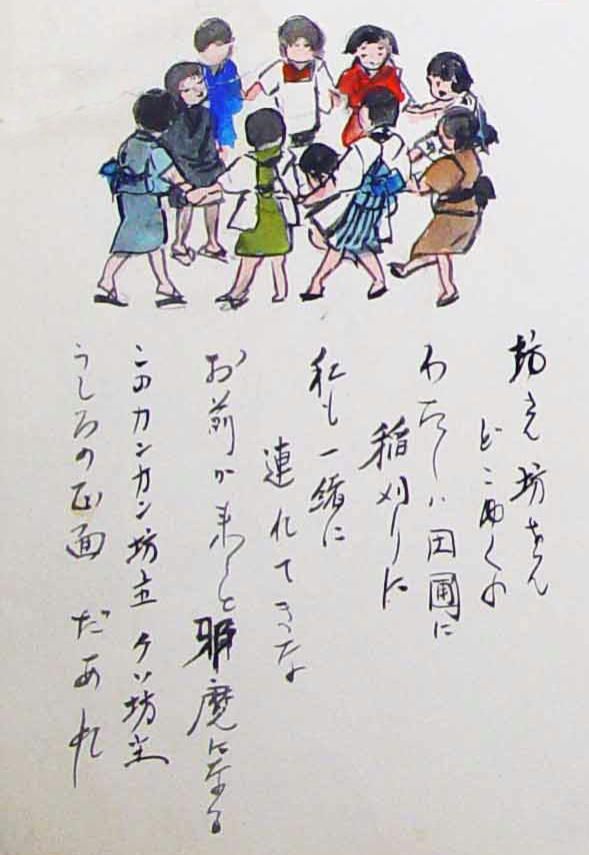 坊さん坊さん
どこ行くの
わたしは田圃に
稲刈りに
私も一緒に
連れてきな
お前が来ると邪魔になる
このカンカン坊主クソ坊主
うしろの正面だあれ